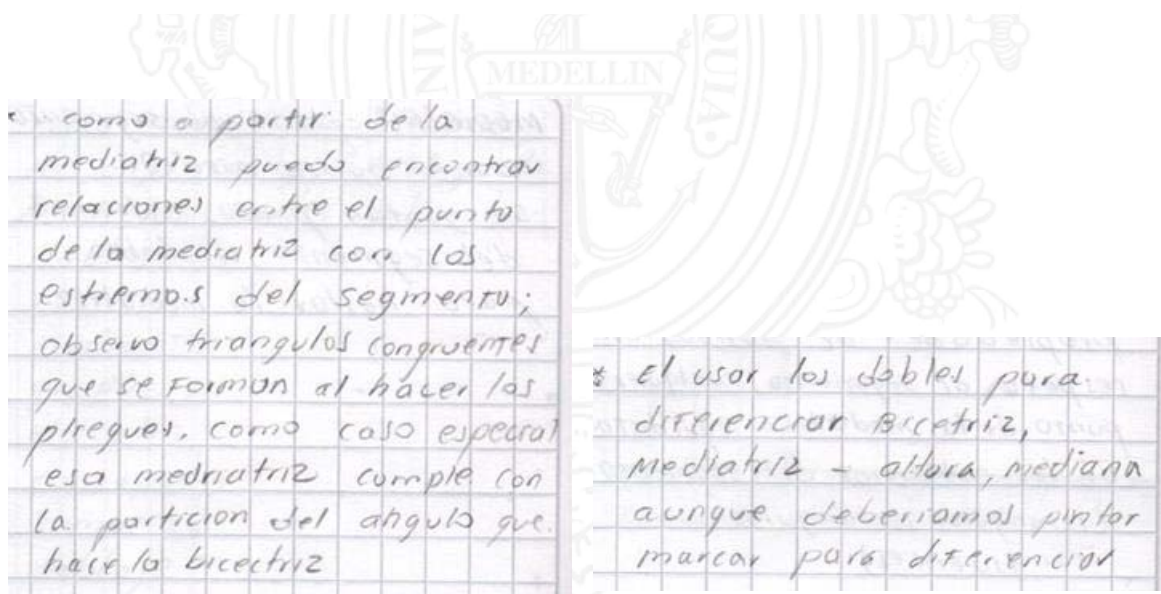 MEDELLIN
* como a partir de la
mediatriz puedo encontrar
relaciones entre el punto
de la mediatriz con los
estremos del segmento;
observo triangulos congruentes
que se forman al hacer los
pliegues. como caso especial
esa medriatriz cumple con
la particion del angulo que
hace la bicectriz
* El usar los dobles para
diferenciar Bicetriz,
Mediatriz - altura, mediana
aunque deberiamos pintar
marcar para diferenciar